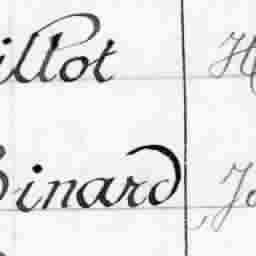 illot H
Binard Jo